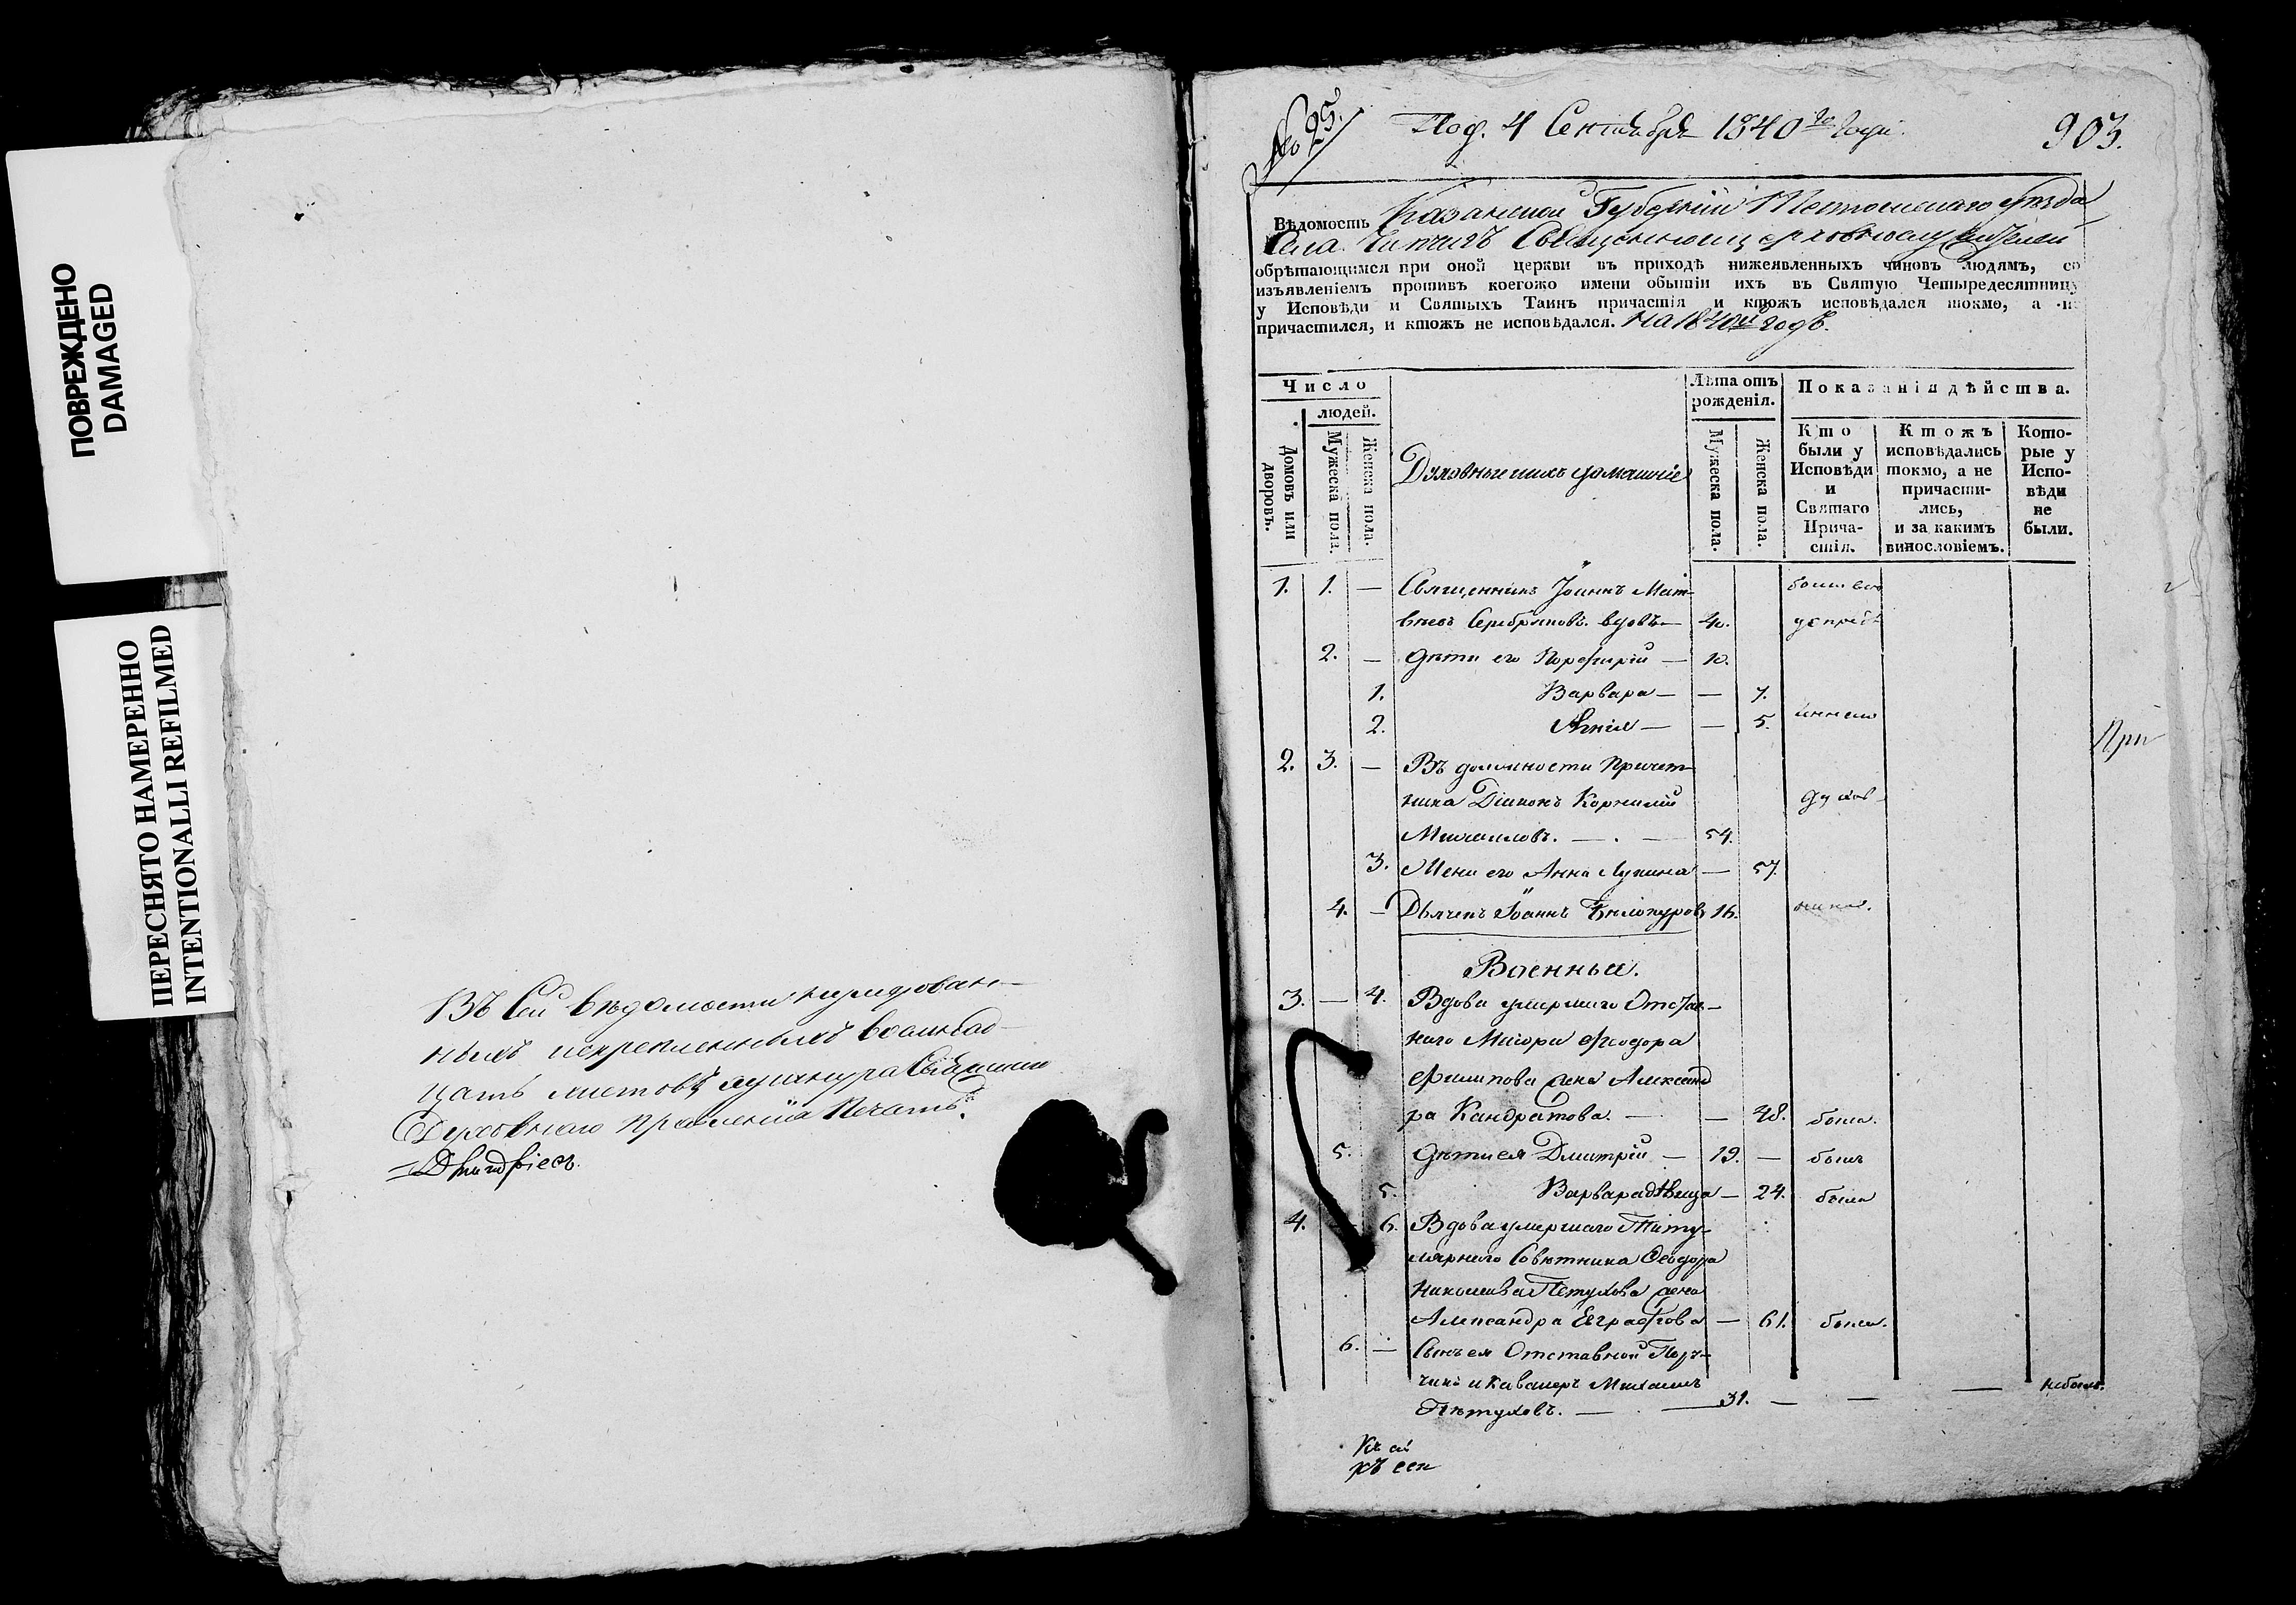 ПОВРЕЖДЕНО
DAMAGED
ПЕРЕСНЯТО НАМЕРЕННО
INTENTIONALLI REFILMED
Въ сей вѣдомости нумерован-
ныхъ и скрепленныхъ восемнад-
цать листовъ
Духовнаго Правленія Печать.
№ 25.
Под. 4 Сентября 1840го года.
903.
Вѣдомость Казанской Губерніи уѣзда
Села Священноцерковнослужителей
обрѣтающимся при оной церкви въ приходѣ нижеявленныхъ чиновъ людямъ, со
изъявленіемъ противъ коегожо имени обытіи ихъ въ Святую Четыредесятницу
у Исповѣди и Святыхъ Таинъ причастія и ктожъ исповѣдался токмо, а н
причастился, и ктожъ не исповѣдался. На 1840й годъ.
Число
людей.
Домовъ или дворовъ.
Мужеска пола.
Женска пола.
Духовные и ихъ домашніе
Лѣта отъ рожденія.
Мужеска пола.
Женска пола.
Показанія дѣйства.
Кто были у Исповѣди и Святаго Причастія.
Ктожъ исповѣдались токмо, а не причастились, и за какимъ винословіемъ.
Которые у Исповѣди не были.
1. 1. — Священникъ Іоаннъ Мат-
вѣевъ Серебряковъ вдовъ — 40.
2. — Дѣти его Порфирій — 10.
1. Варвара — — 7.
2. Агнія — — 5.
При
2. 3. — Въ должности Причет-
ника Діаконъ Корнилій духов-
Михаиловъ. — 54.
3. Жена его Анна Лукина — 57.
4. — Дьячекъ Іоаннъ Бѣлокуровъ 16. ника.
Военные.
3. — 4. Вдова умершаго Отстав-
наго Маіора Ѳеодора
Филипова жена Александ
ра Кандратова. — — 48. была.
5. Дѣти ея Дмитрій — 19. — былъ
5. Варвара дѣвица — 24. была
4. 6. Вдова умершаго Титу-
лярнаго Совѣтника Ѳеодора
Николаева Петухова жена
Александра Евграфова — 61. была.
6. — Сынъ ея Отставной Пору-
чикъ и Кавалеръ Михаилъ
Пѣтуховъ. — 31. — — — небылъ.
къ сей